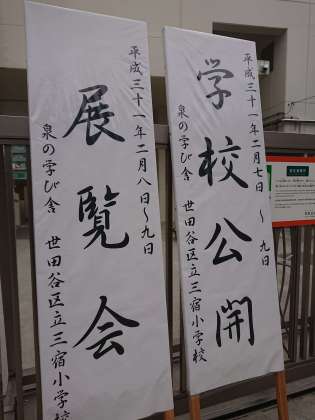 平成三十一年二月七日 〜 九日
学校公開
泉の学び舎 世田谷区立三宿小学校
平成三十一年二月八日〜九日
展覧会
泉の学び舎 世田谷区立三宿小学校